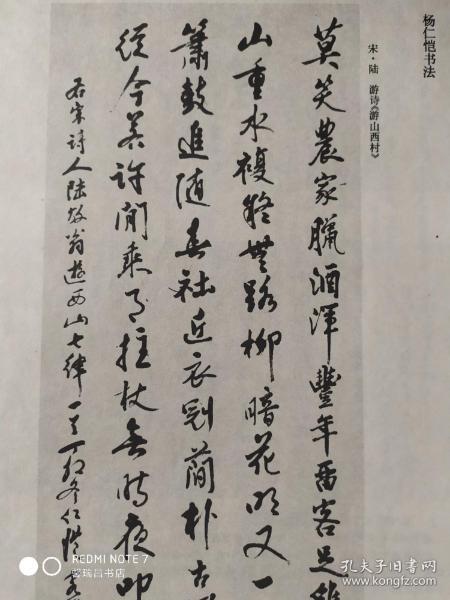 杨仁恺书法
宋·陆 游诗《游山西村》
莫笑農家臘酒渾豐年留客足雞
山重水複疑無路柳暗花明又一
簫鼓追随春社近衣冠簡朴古
從今若許閒乘月拄杖無時夜叩
右宋诗人陆放翁遊西山七律一首丁卯冬仁愷書
REDMI NOTE 7
馨瑞昌书店
孔夫子旧书网
www.kongfz.com